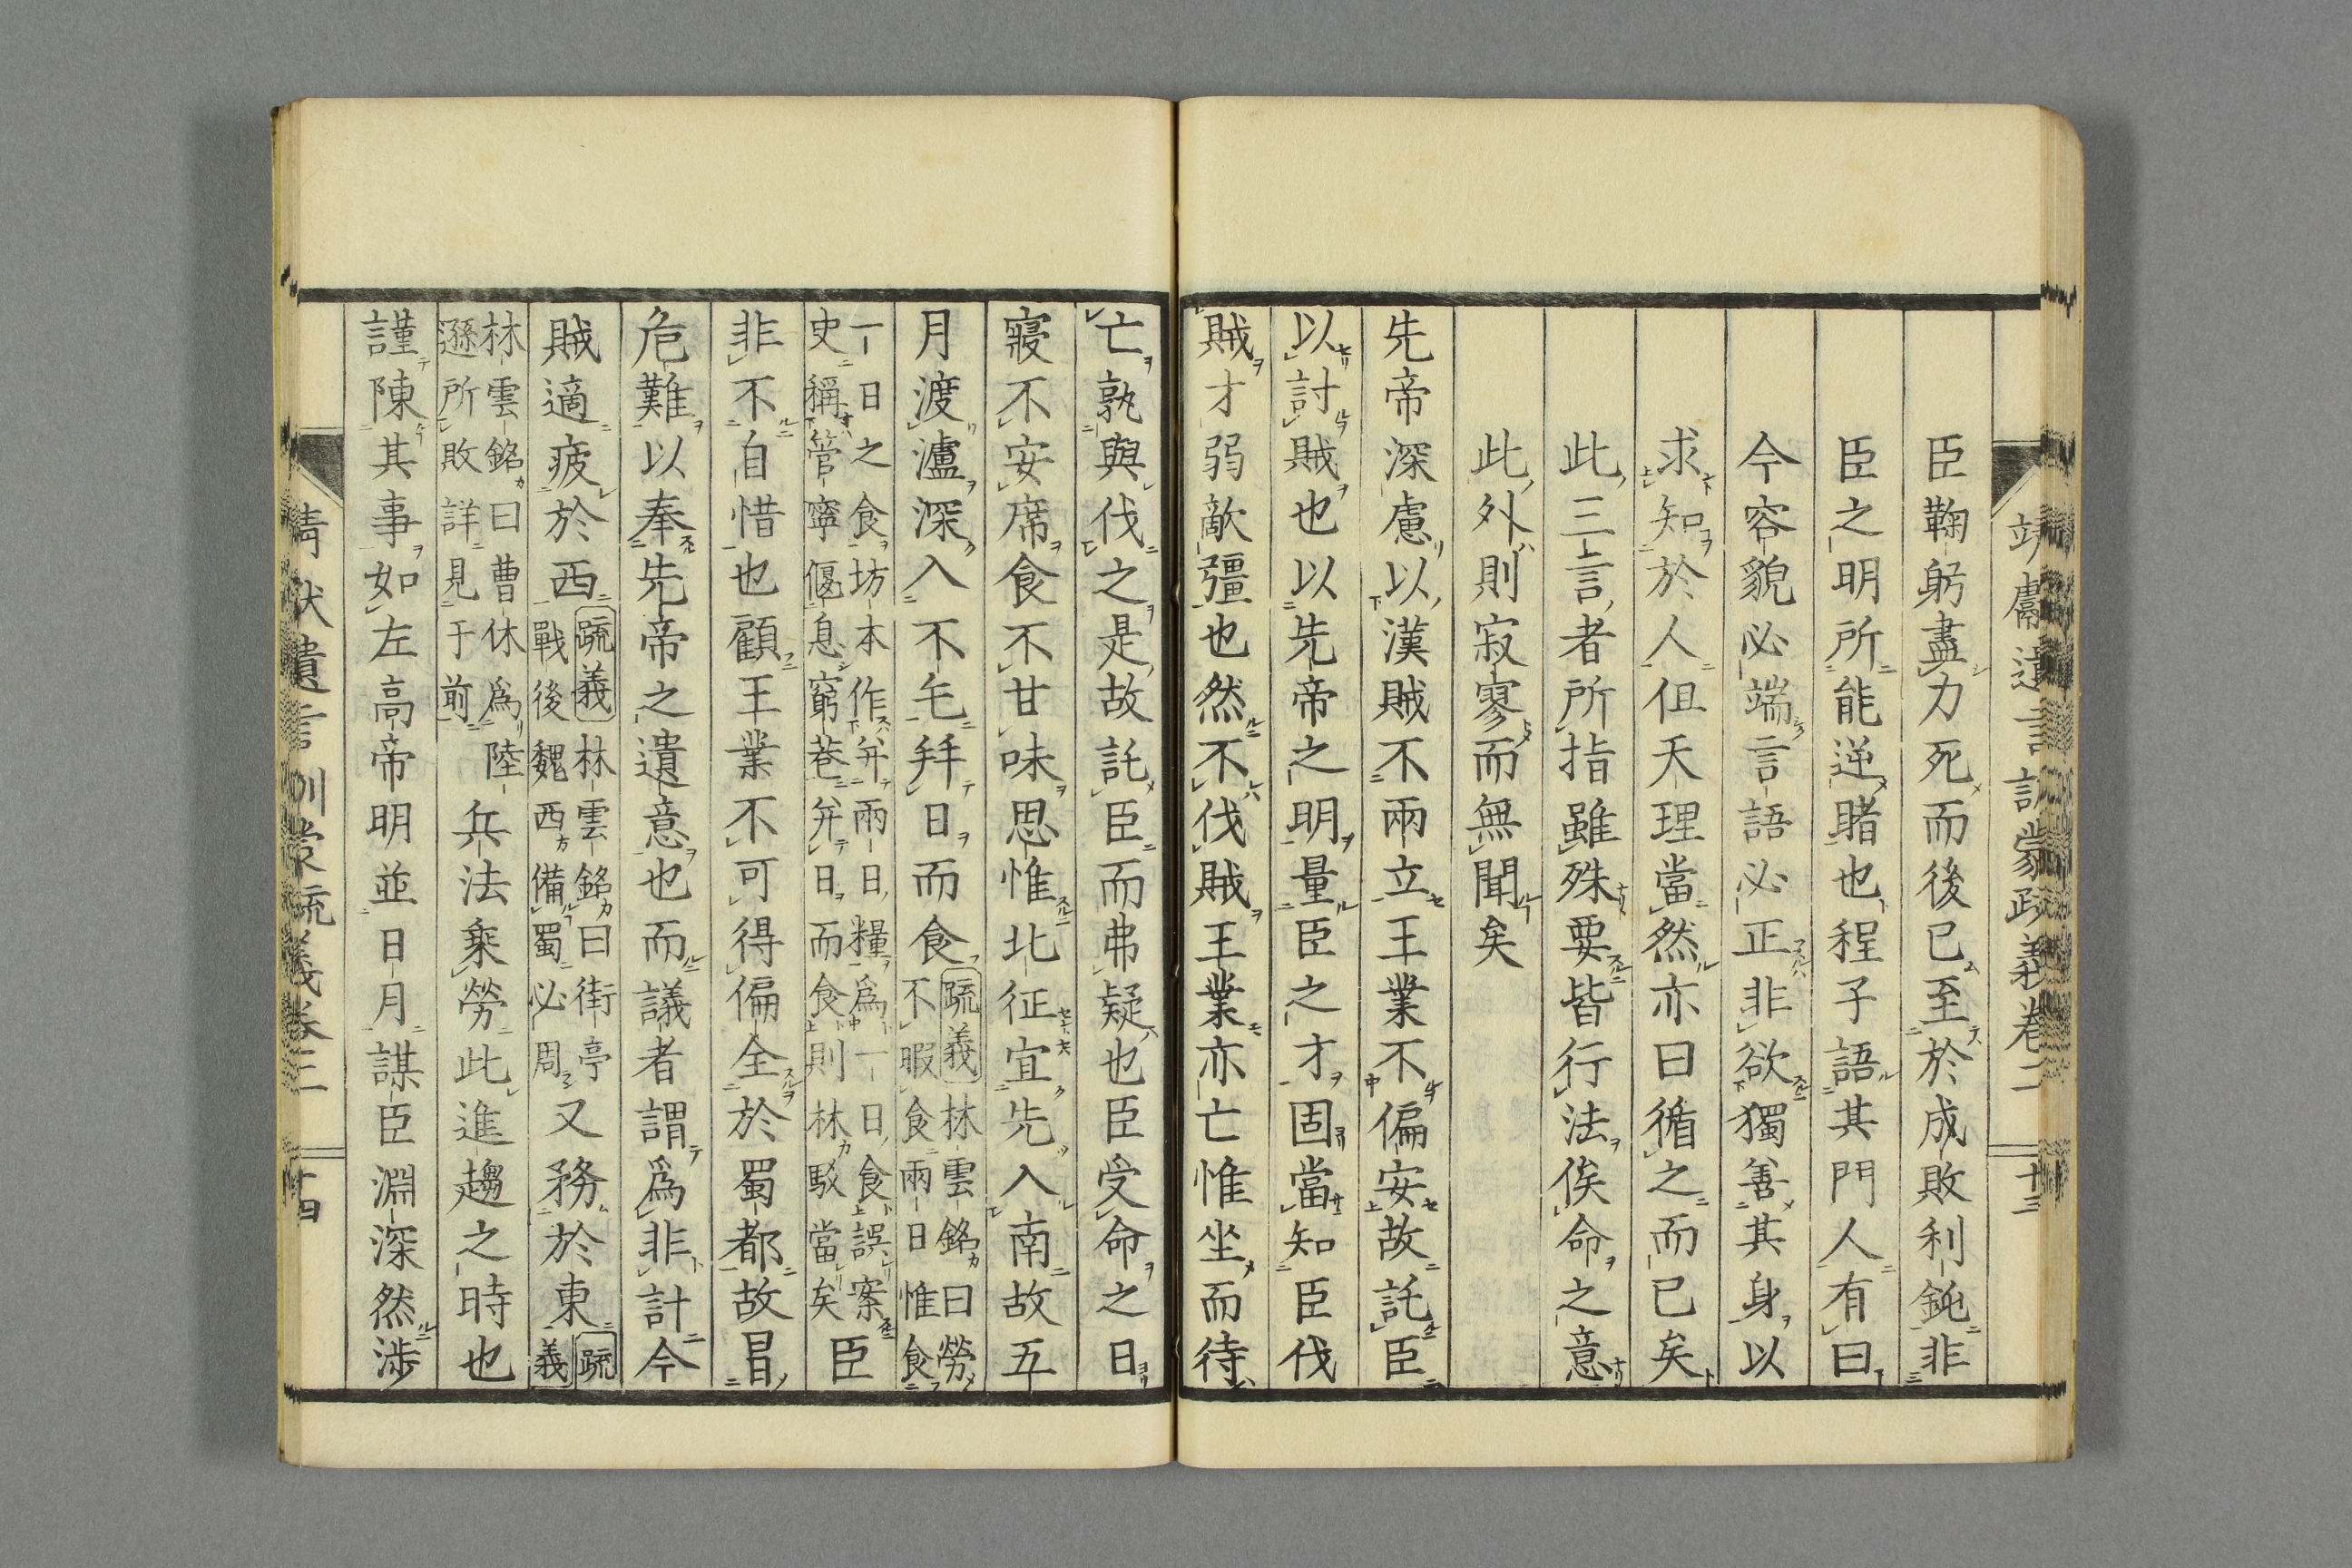 靖獻遺言訓蒙疏義卷二 十三
臣鞠躬盡力死而後已至於成敗利鈍非
臣之明所能逆睹也程子語其門人有曰
今容貌必端言語必正非欲獨善其身以
求知於人但天理當然亦曰循之而已矣
此三言者所指雖殊要皆行法俟命之意
此外則寂寥而無聞矣
先帝深慮以漢賊不兩立王業不偏安故託臣
以討賊也以先帝之明量臣之才固當知臣伐
賊才弱敵彊也然不伐賊王業亦亡惟坐而待
亡孰與伐之是故託臣而弗疑也臣受命之日
寢不安席食不甘味思惟北征宜先入南故五
月渡瀘深入不毛幷日而食
疏義 林雲銘曰勞
不暇食兩日惟食
一日之食坊本作幷兩日糧爲一日食誤案
史稱管寧偃息窮巷幷日而食則林駁當矣
臣
非不自惜也顧王業不可得偏全於蜀都故冒
危難以奉先帝之遺意也而議者謂爲非計今
賊適疲於西
疏義 林雲銘曰街亭
戰後魏西備蜀必周
又務於東
疏
義
林雲銘曰曹休爲陸
遜所敗詳見于前
兵法乗勞此進趨之時也
謹陳其事如左高帝明並日月謀臣淵深然涉
遺言訓蒙疏義卷二 十四